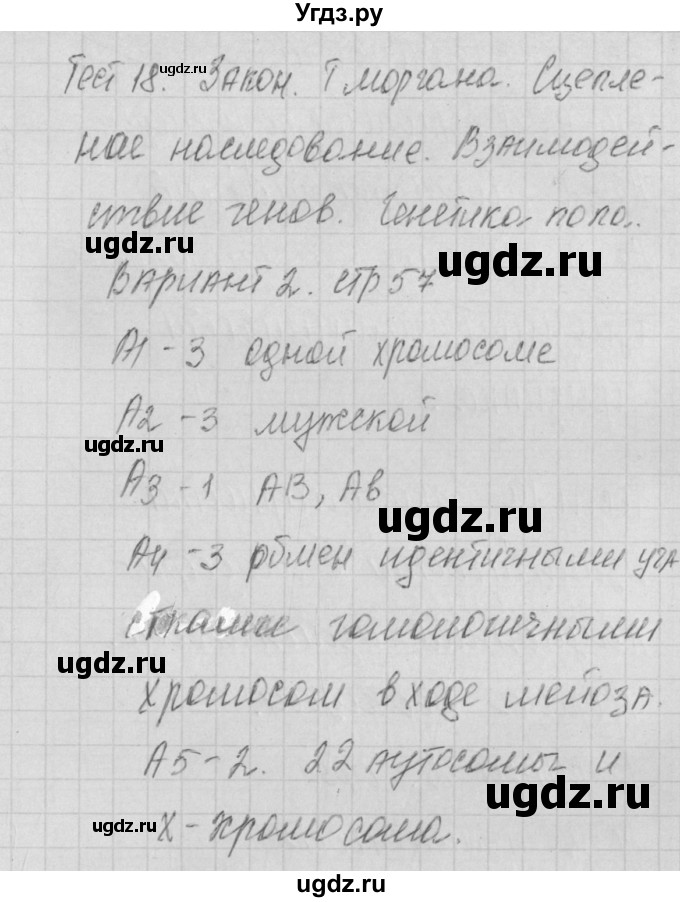 Угдз.ру
Тест 18. Закон. Т моргана. Сцепле-
ugdz.ru
ное наследование. Взаимодей-
ствие генов. Генетика пола.
ugdz.ru
ugdz.ru
Вариант 2. стр 57
А1 - 3 одной хромосоме
А2 - 3 мужской
ugdz.ru
А3 - 1 АВ, Ав
ugdz.ru
А4 - 3 обмен идентичными уча
стками гомологичными
ugdz.ru
хромосом в ходе мейоза.
А5 - 2. 22 аутосомы и
ugdz.ru
ugdz.ru
Х - хромосома.
ugdz.ru